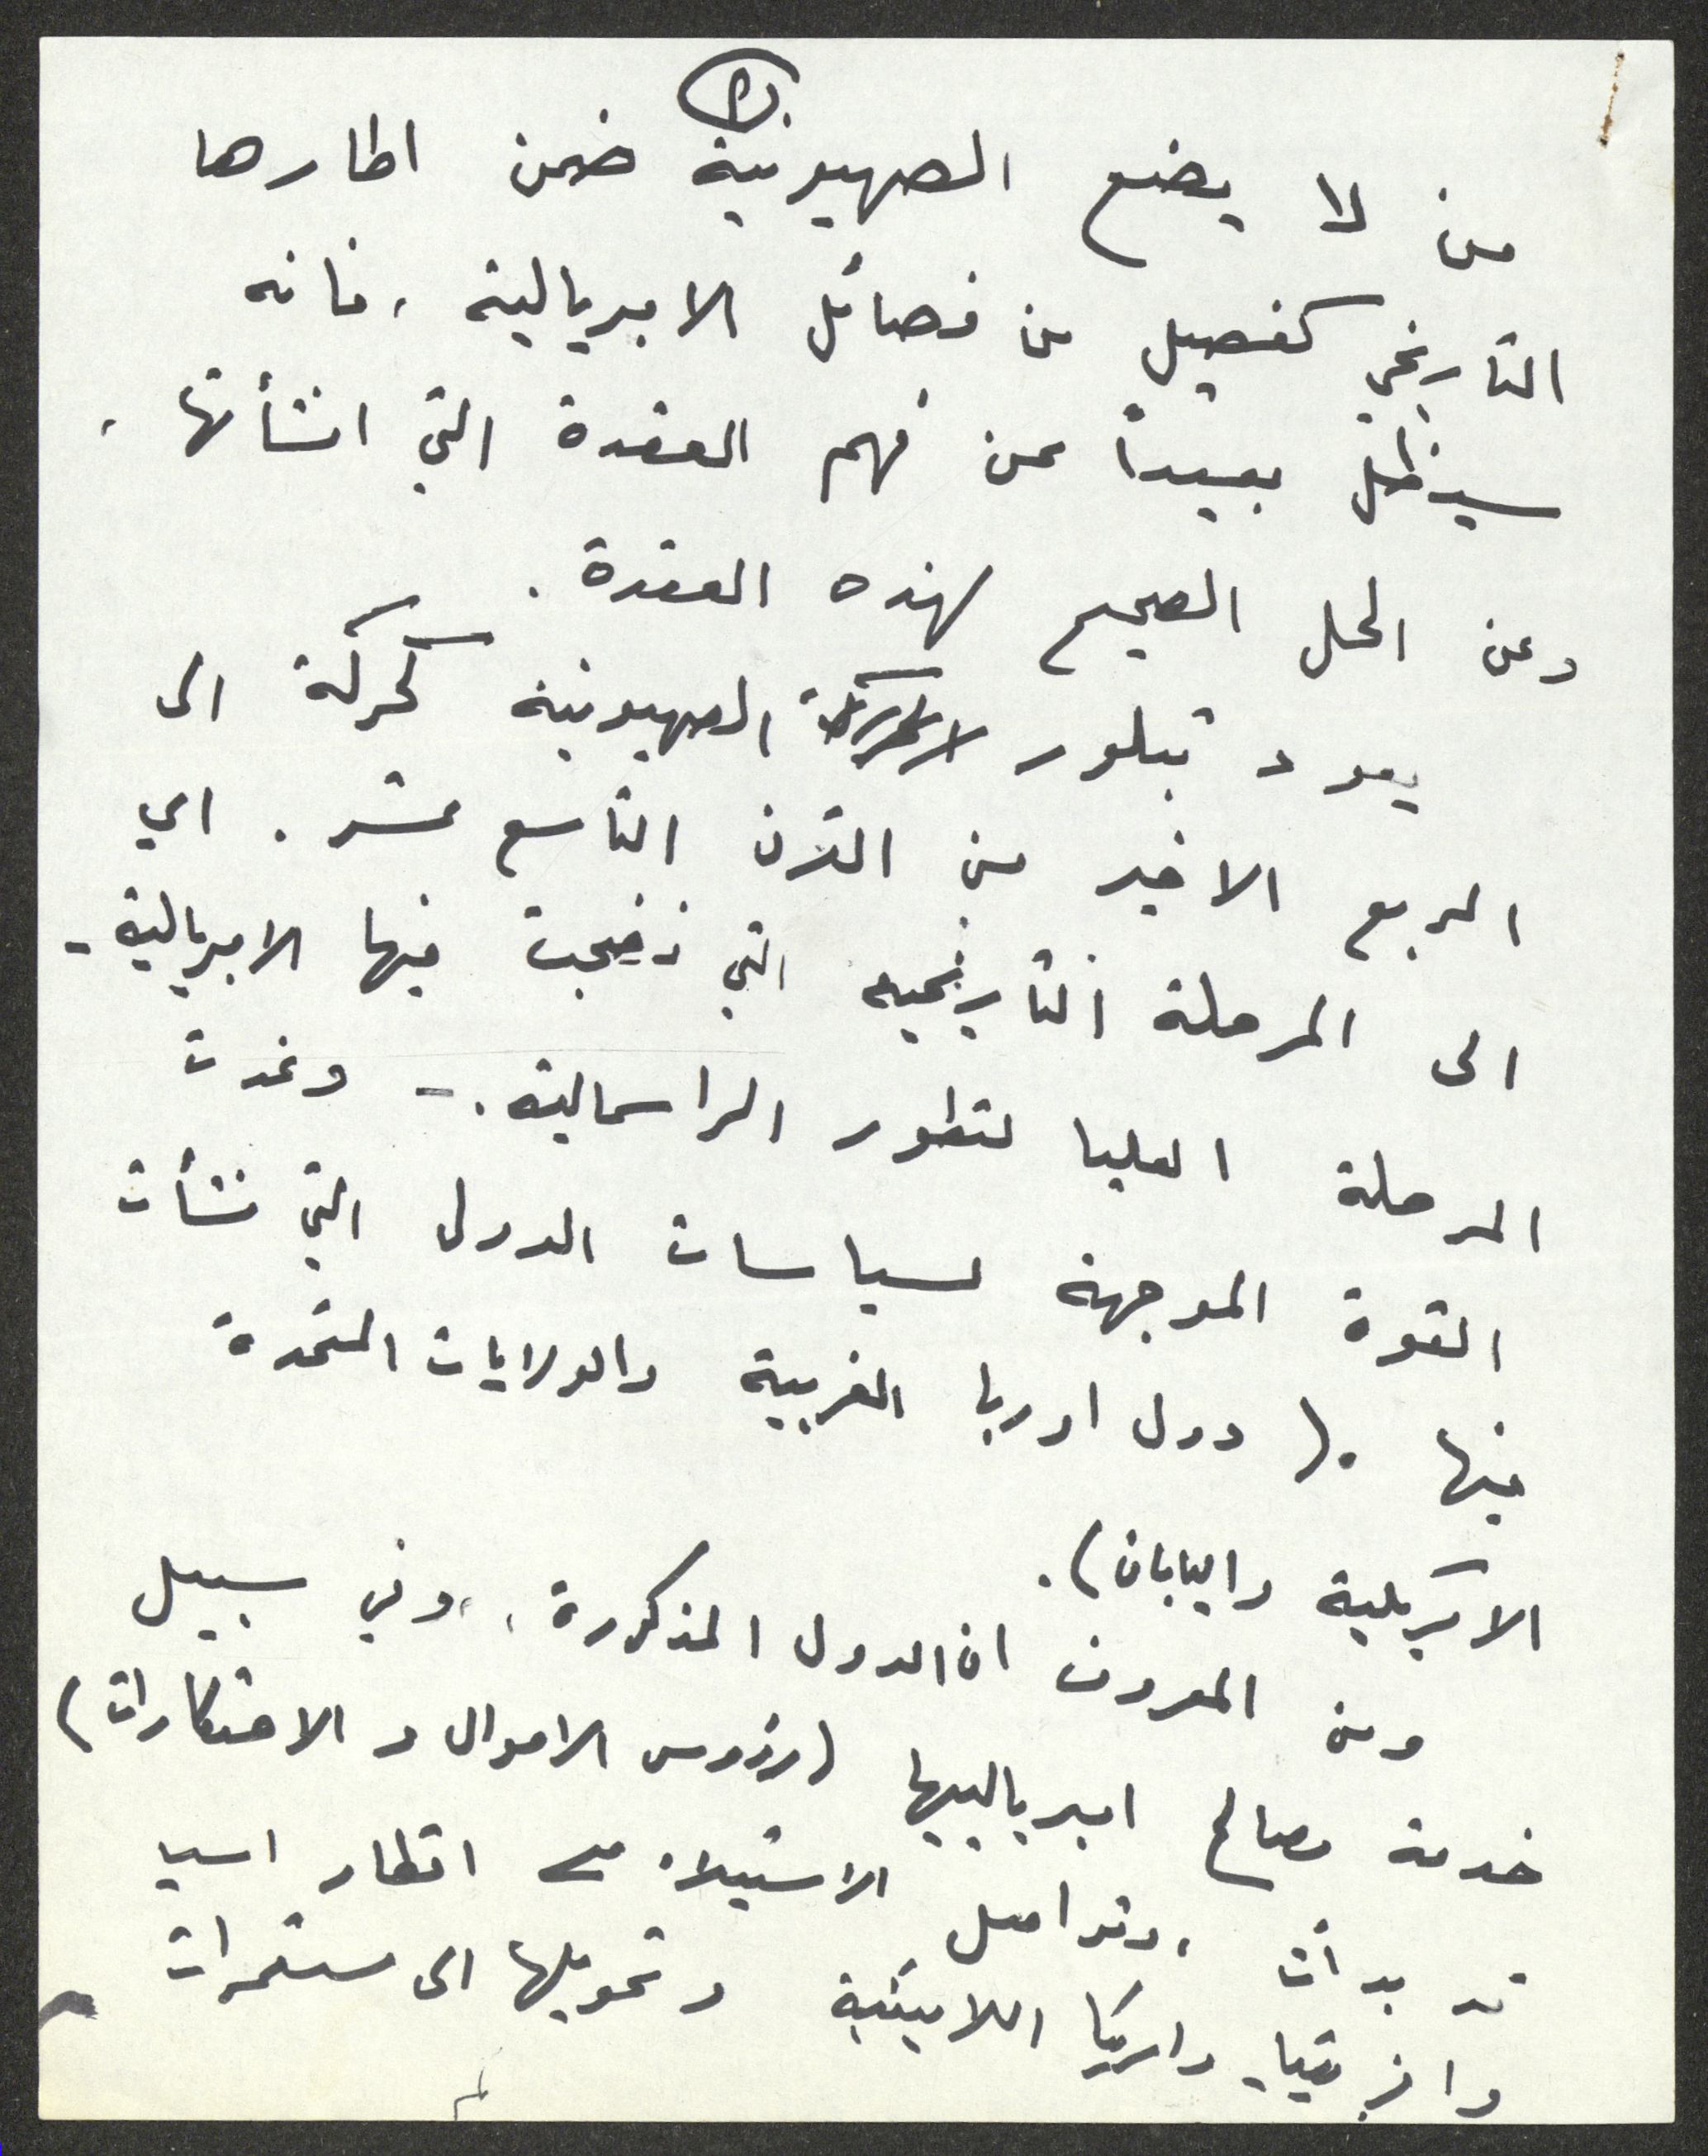 من لا يضع الصهيونية ضمن اطارها
التاريخي كفصيل من فصائل الامبريالية ، فانه
سيظل بعيداً عن فهم العقدة التي انشأتها ،
وعن الحل الصحيح لهذه العقدة .
يعود تبلور الصهيونية كحركة الى
الربع الاخير من القرن التاسع عشر . اي
الى المرحلة التاريخية التي نضجت فيها الامبريالية -
المرحلة العليا لتطور الراسمالية . - وغدت
القوة الموجهة لسياسات الدول التي نشأت
فيها . ( دول اوربا الغربية والولايات المتحدة
الامريكية واليابان ) .
ومن المعروف ان الدول المذكورة ، وفي سبيل
خدمة مصالح امبرياليها ( رؤوس الاموال و الاحتكارات )
قد بدأت ، وتواصل الاستيلاء على اقطار اسيا
وافريقيا وامريكا اللاتينية وتحويلها الى مستعمرات